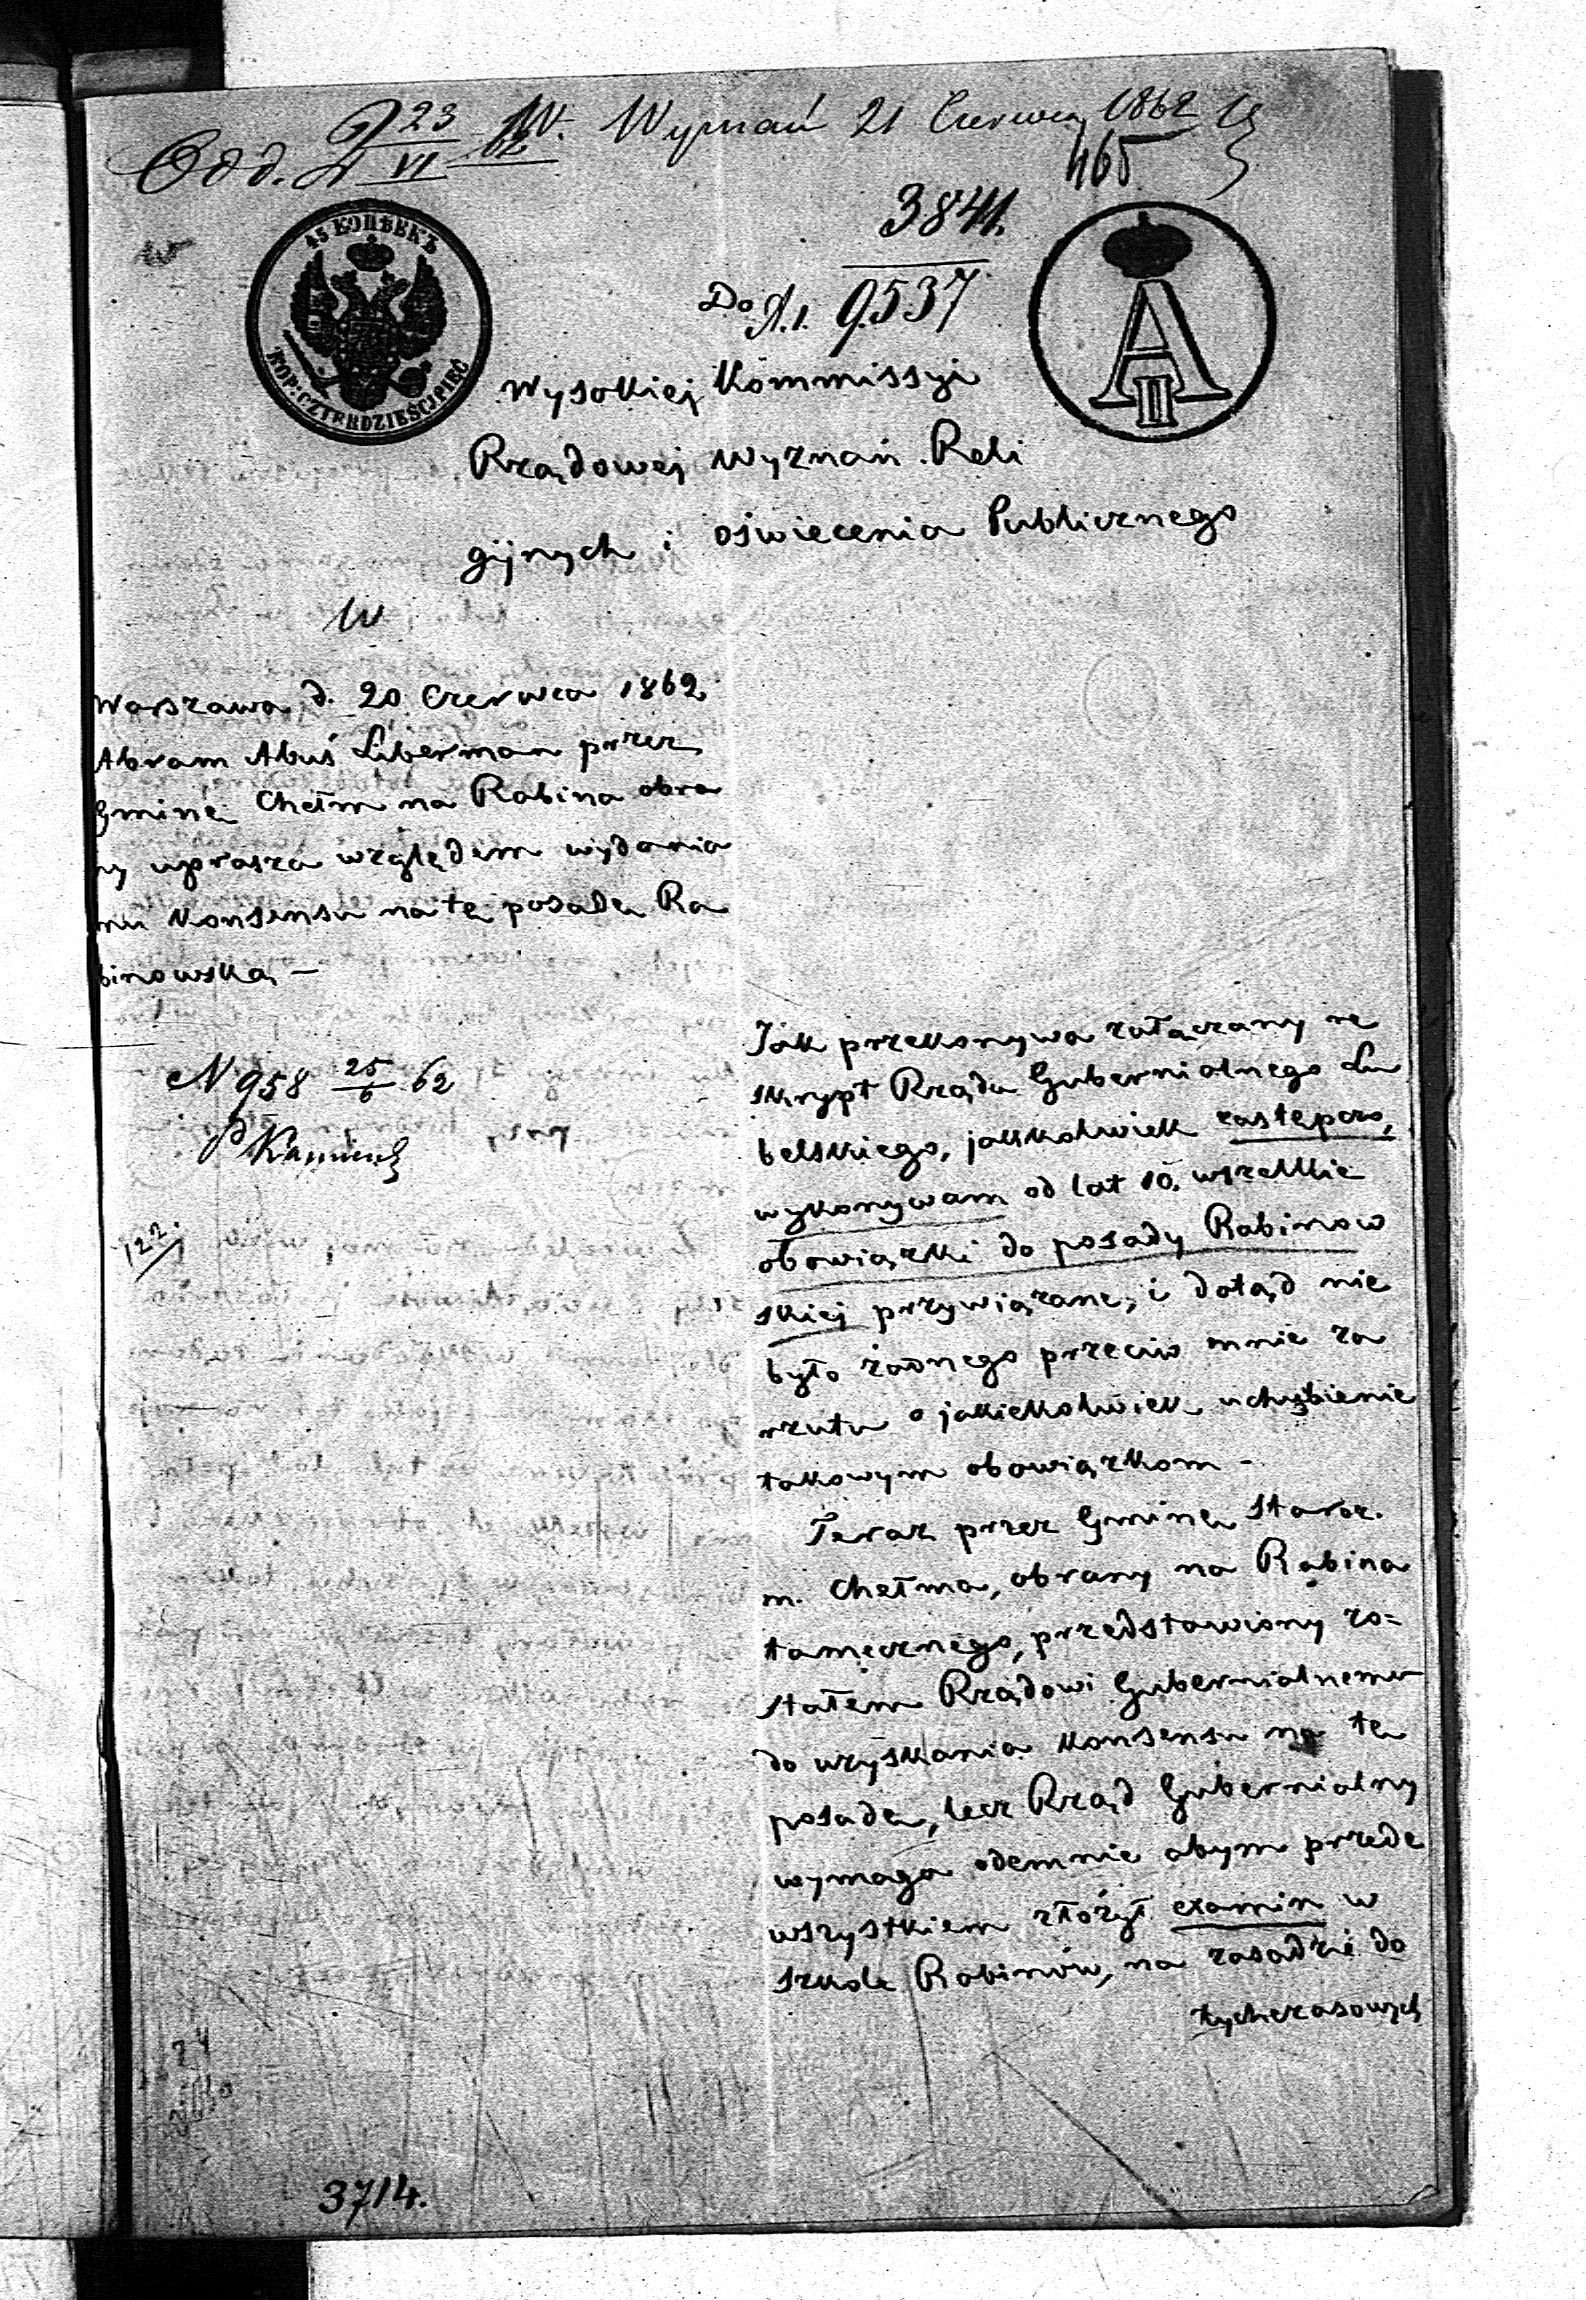 Odd. 23/VI 62 W. Wyznań 21 Czerwca 1862
465
3841.
45 КОПѢЕКЪ
KOP: CZTERDZIEŚCI PIĘĆ
A II
Do A.1. 9537
Wysokiej Kommissyi
Rządowej Wyznań Reli
gijnych i oświecenia Publicznego
W
Warszawa d. 20 Czerwca 1862,
Abram Abuś Liberman przez
Gminę Chełm na Rabina obra
ny uprasza względem wydania
mu Konsensu na tę posadę Ra
binowską –
N 958 25/6 62
122.
Jak przekonywa załączany re
skrypt Rządu Gubernialnego Lu
belskiego, jakkolwiek zastępczo,
wykonywam od lat 10, wszelkie
obowiązki do posady Rabinow
skiej przywiązane, i dotąd nie
było żadnego przeciw mnie za
rzutu o jakiekolwiek uchybienie
takowym obowiązkom –
Teraz przez Gminę Staroz.
m. Chełma, obrany na Rabina
tamecznego, przedstawiony zo=
stałem Rządowi Gubernialnemu
do uzyskania Konsensu na tę
posadę, lecz Rząd Gubernialny
wymaga odemnie abym przede
wszystkiem złożył examin w
szkole Rabinów, na zasadzie do
tychczasowych
3714.